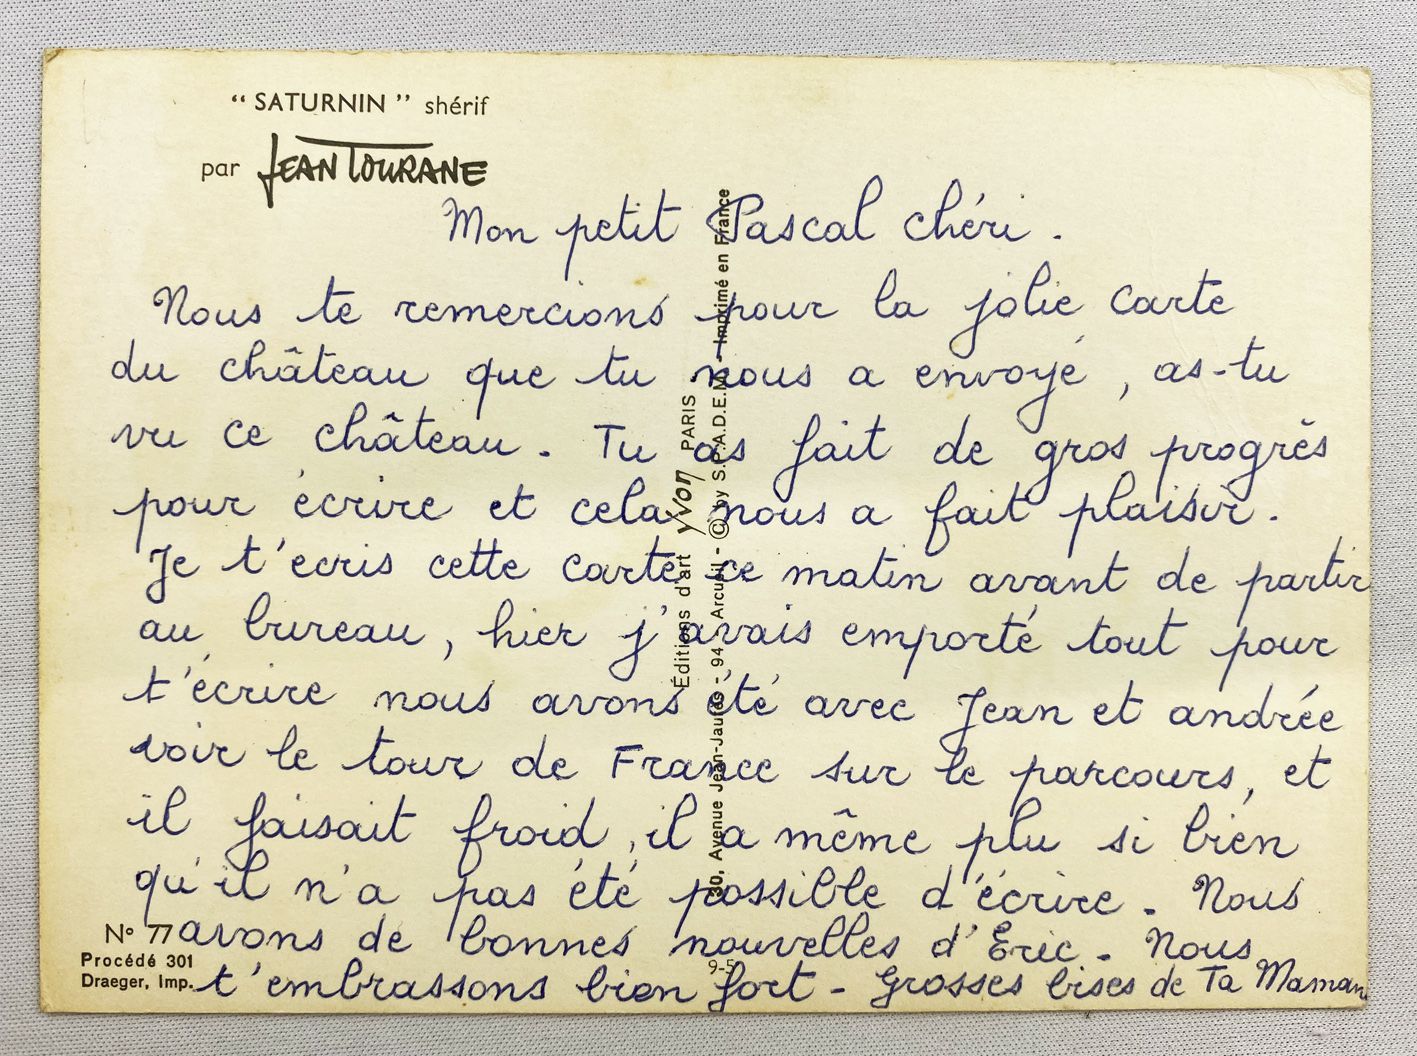 “ SATURNIN ” shérif
par JEAN TOURANE
Mon petit Pascal chéri.
Nous te remercions pour la jolie carte
du château que tu nous a envoyé, as-tu
vu ce château. Tu as fait de gros progrès
pour écrire et cela nous a fait plaisir.
Je t'ecris cette carte ce matin avant de partir
au bureau, hier j'avais emporté tout pour
t'écrire nous avons été avec Jean et andrée
voir le tour de France sur le parcours, et
il faisait froid, il a même plu si bien
qu'il n'a pas été possible d'écrire. Nous
avons de bonnes nouvelles d'Eric. Nous
t'embrassons bien fort - Grosses bises de Ta Maman
Éditions d'art yvon PARIS
30, Avenue Jean-Jaurès - 94 - Arcueil - © by S.P.A.D.E.M. - Imprimé en France
N° 77
Procédé 301
Draeger, Imp.
9-5